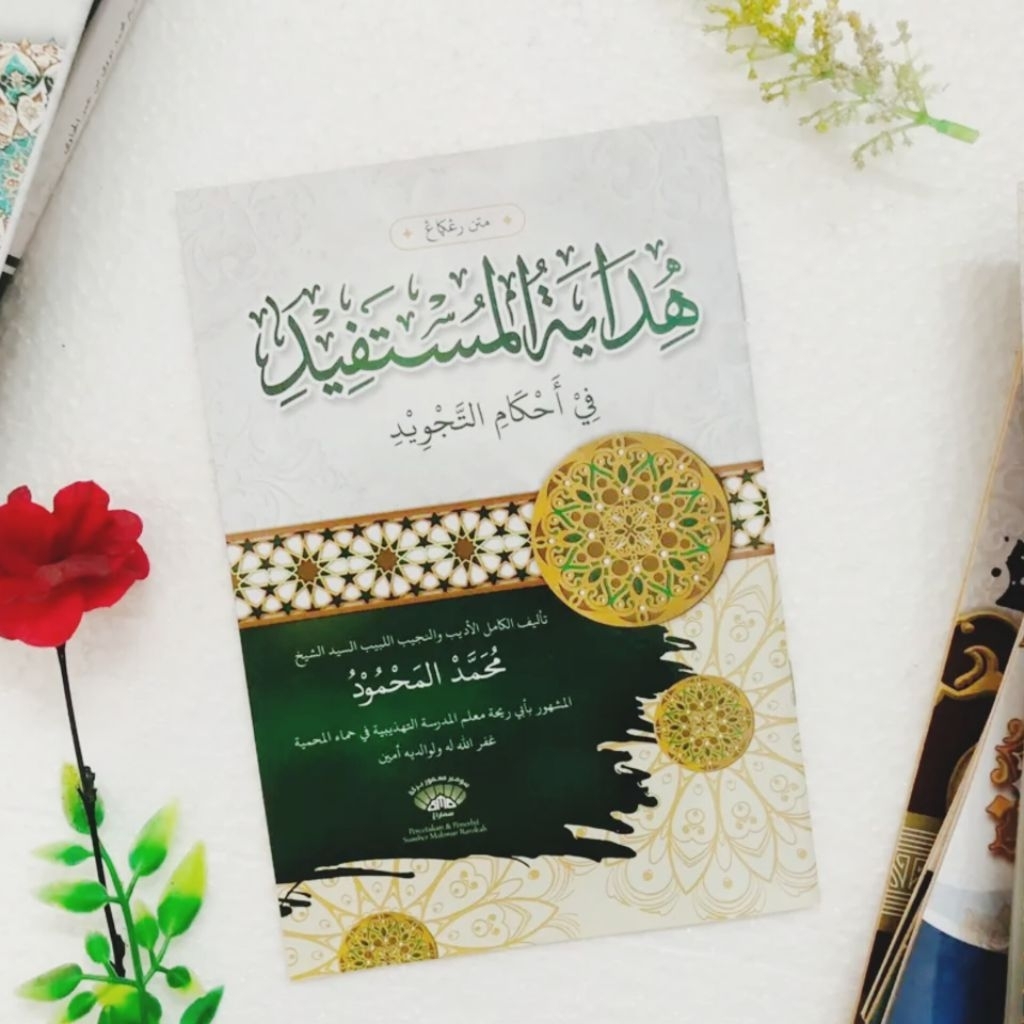 متن رڠكاڠ
هُدَايَةُ الْمُسْتَفِيْدِ
فِيْ أَحْكَامِ التَّجْوِيْدِ
تأليف الكامل الأديب والنجيب اللبيب السيد الشيخ
مُحَمَّدْ المَحْمُوْدُ
المشهور بأبي ريحة معلم المدرسة التهذيبية في حماه المحمية
غفر الله له ولوالديه أمين
Percetakan & Penerbit
Sumber Makmur Barokah